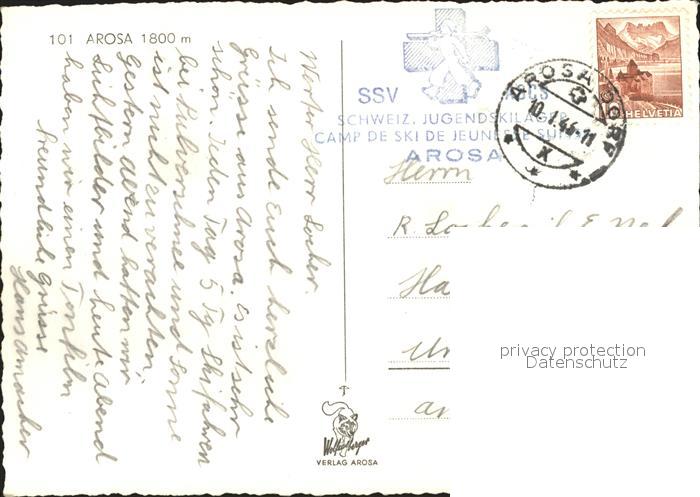 101 AROSA 1800 m
Werter Herr Locher.
Ich sende Euch herzliche
Grüsse aus Arosa. Es ist sehr
schön. Jeden Tag 5 Skifahren
bei Pulverschnee und Sonne
ist nicht zu verachten.
Gestern abend hatten wir
Lichtbilder und heute abend
haben wir einen Tonfilm
freundliche Grüsse
Hans
SSV ASCS
SCHWEIZ. JUGENDSKILAGER
CAMP DE SKI DE JEUNESSE SUISSE
AROSA
AROSA DORF
10.1.44-11
X
HELVETIA
Herrn
R.
Ha
Un
an
privacy protection
Datenschutz
VERLAG AROSA